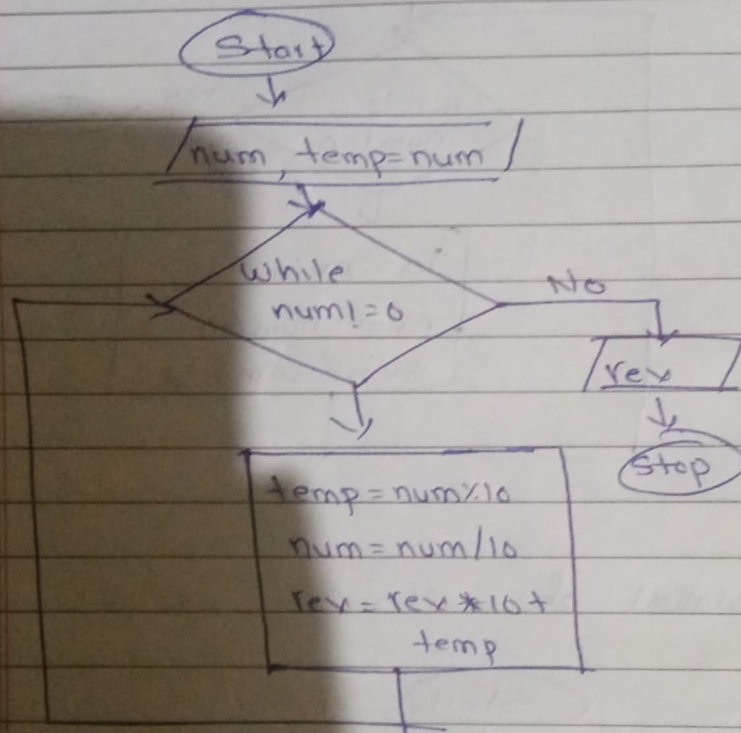 Start
num, temp=num
while
num!=0
No
rev
Stop
temp=num%10
num=num/10
rev=rev*10+
temp